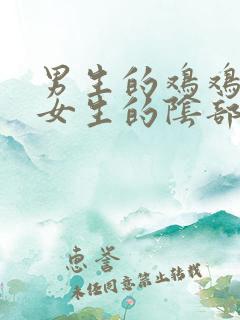 男生的鸡鸡
女生的阴部
惠誉
未经同意禁止转载